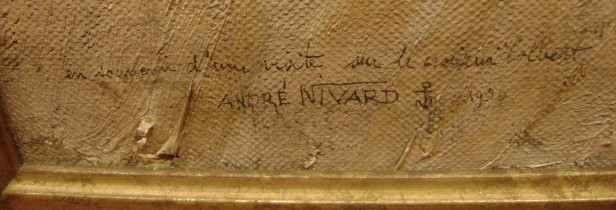 en souvenir d'une visite sur le croiseur "Colbert"
ANDRÉ NIVARD